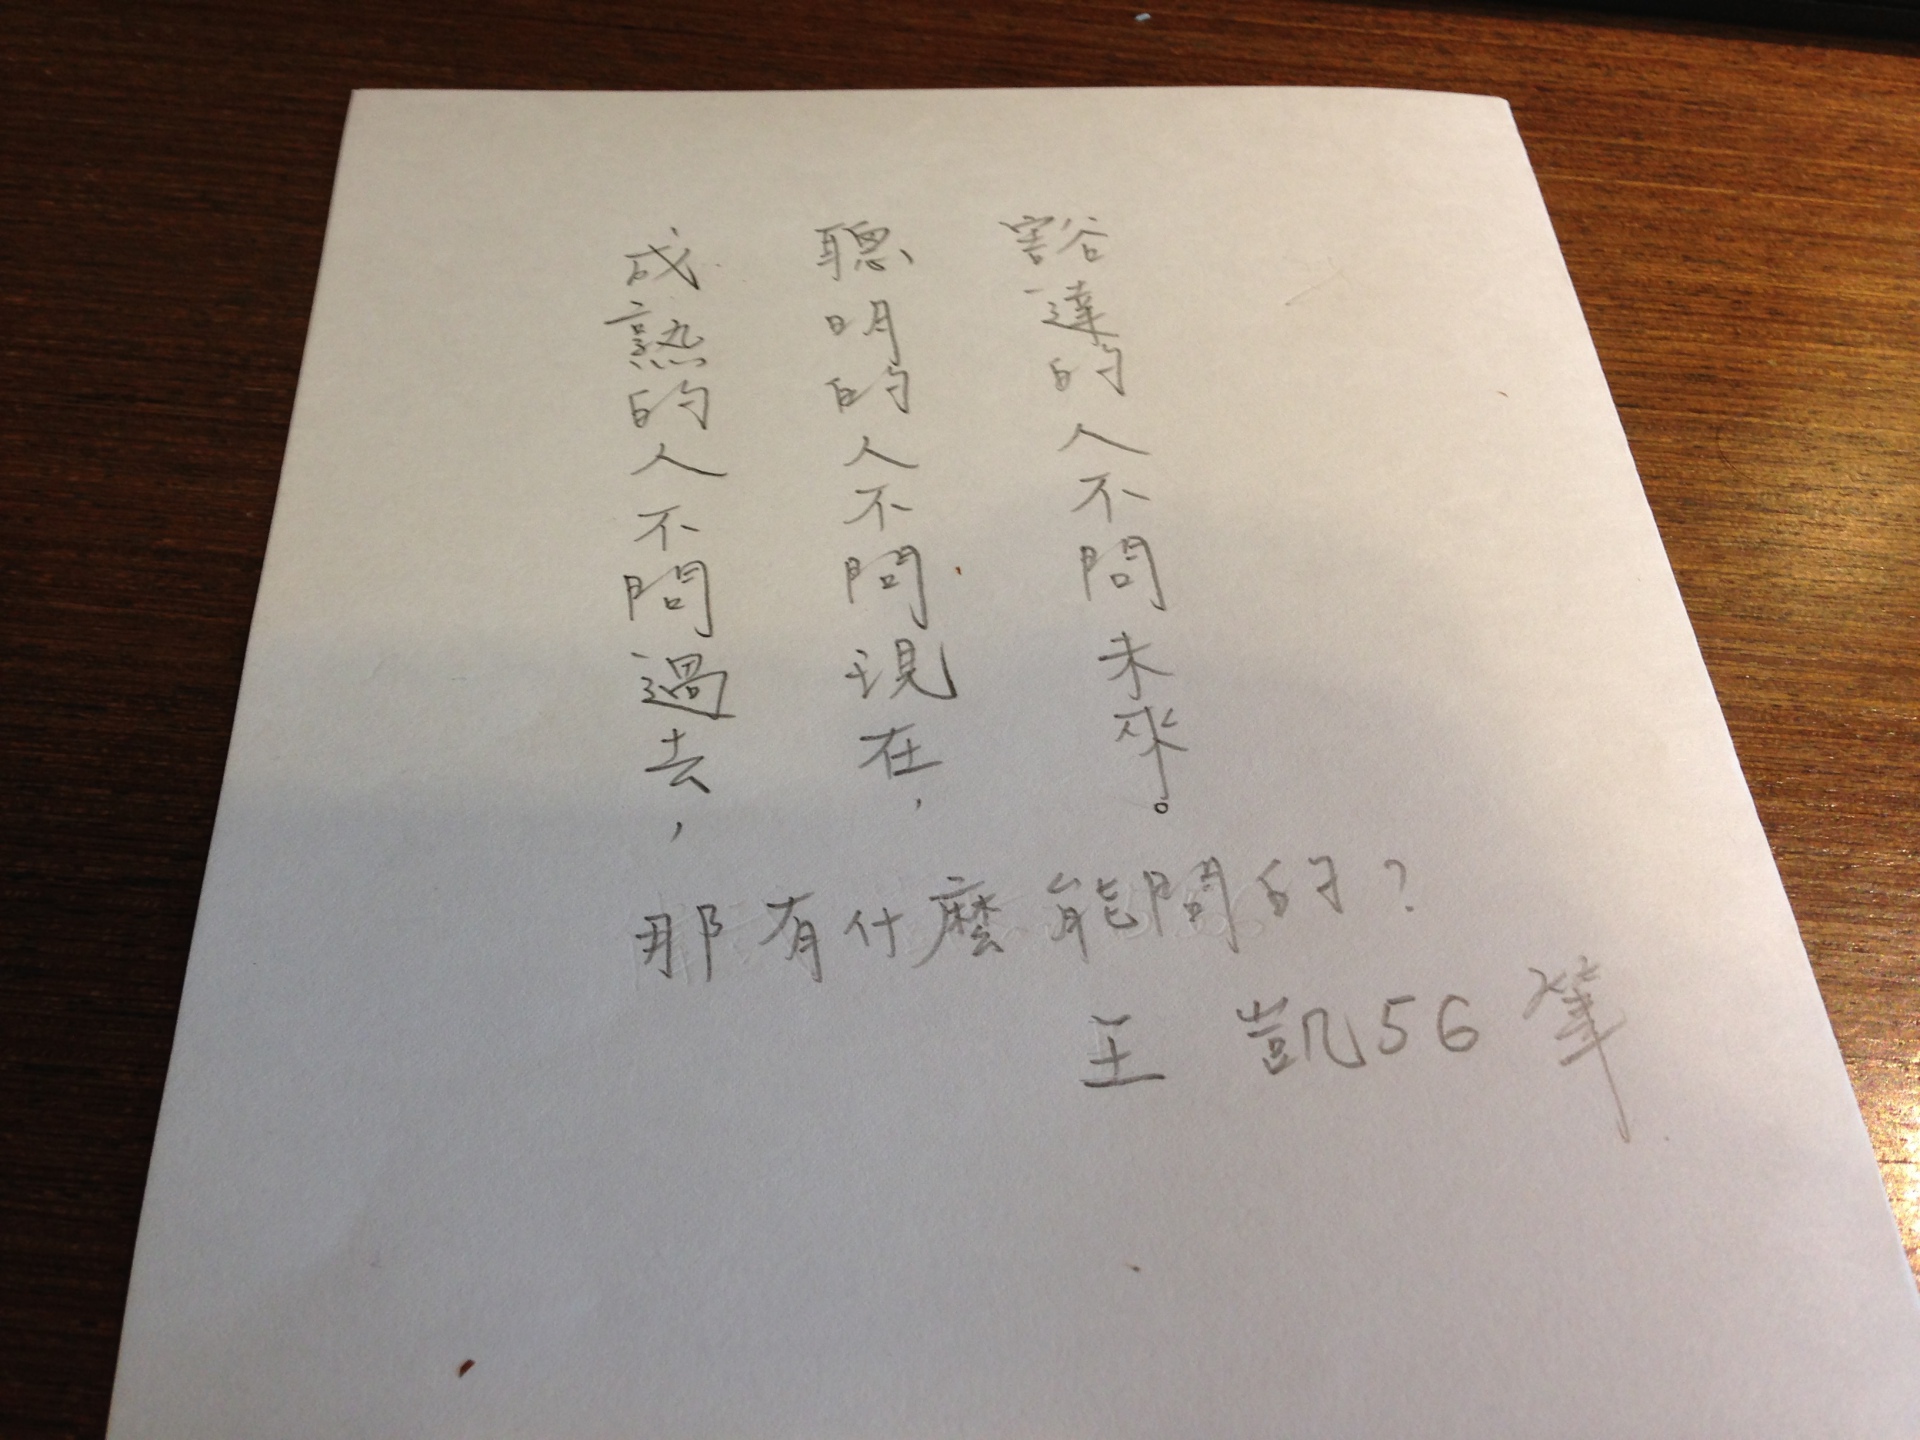 成熟的人不問過去，
聰明的人不問現在，
豁達的人不問未來。
那有什麼能問的？
王 凱56筆